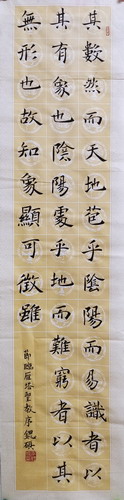 其數然而天地苞乎陰陽而易識者以
其有象也陰陽處乎地而難窮者以其
無形也故知象顯可徵雖
節臨雁塔聖教序